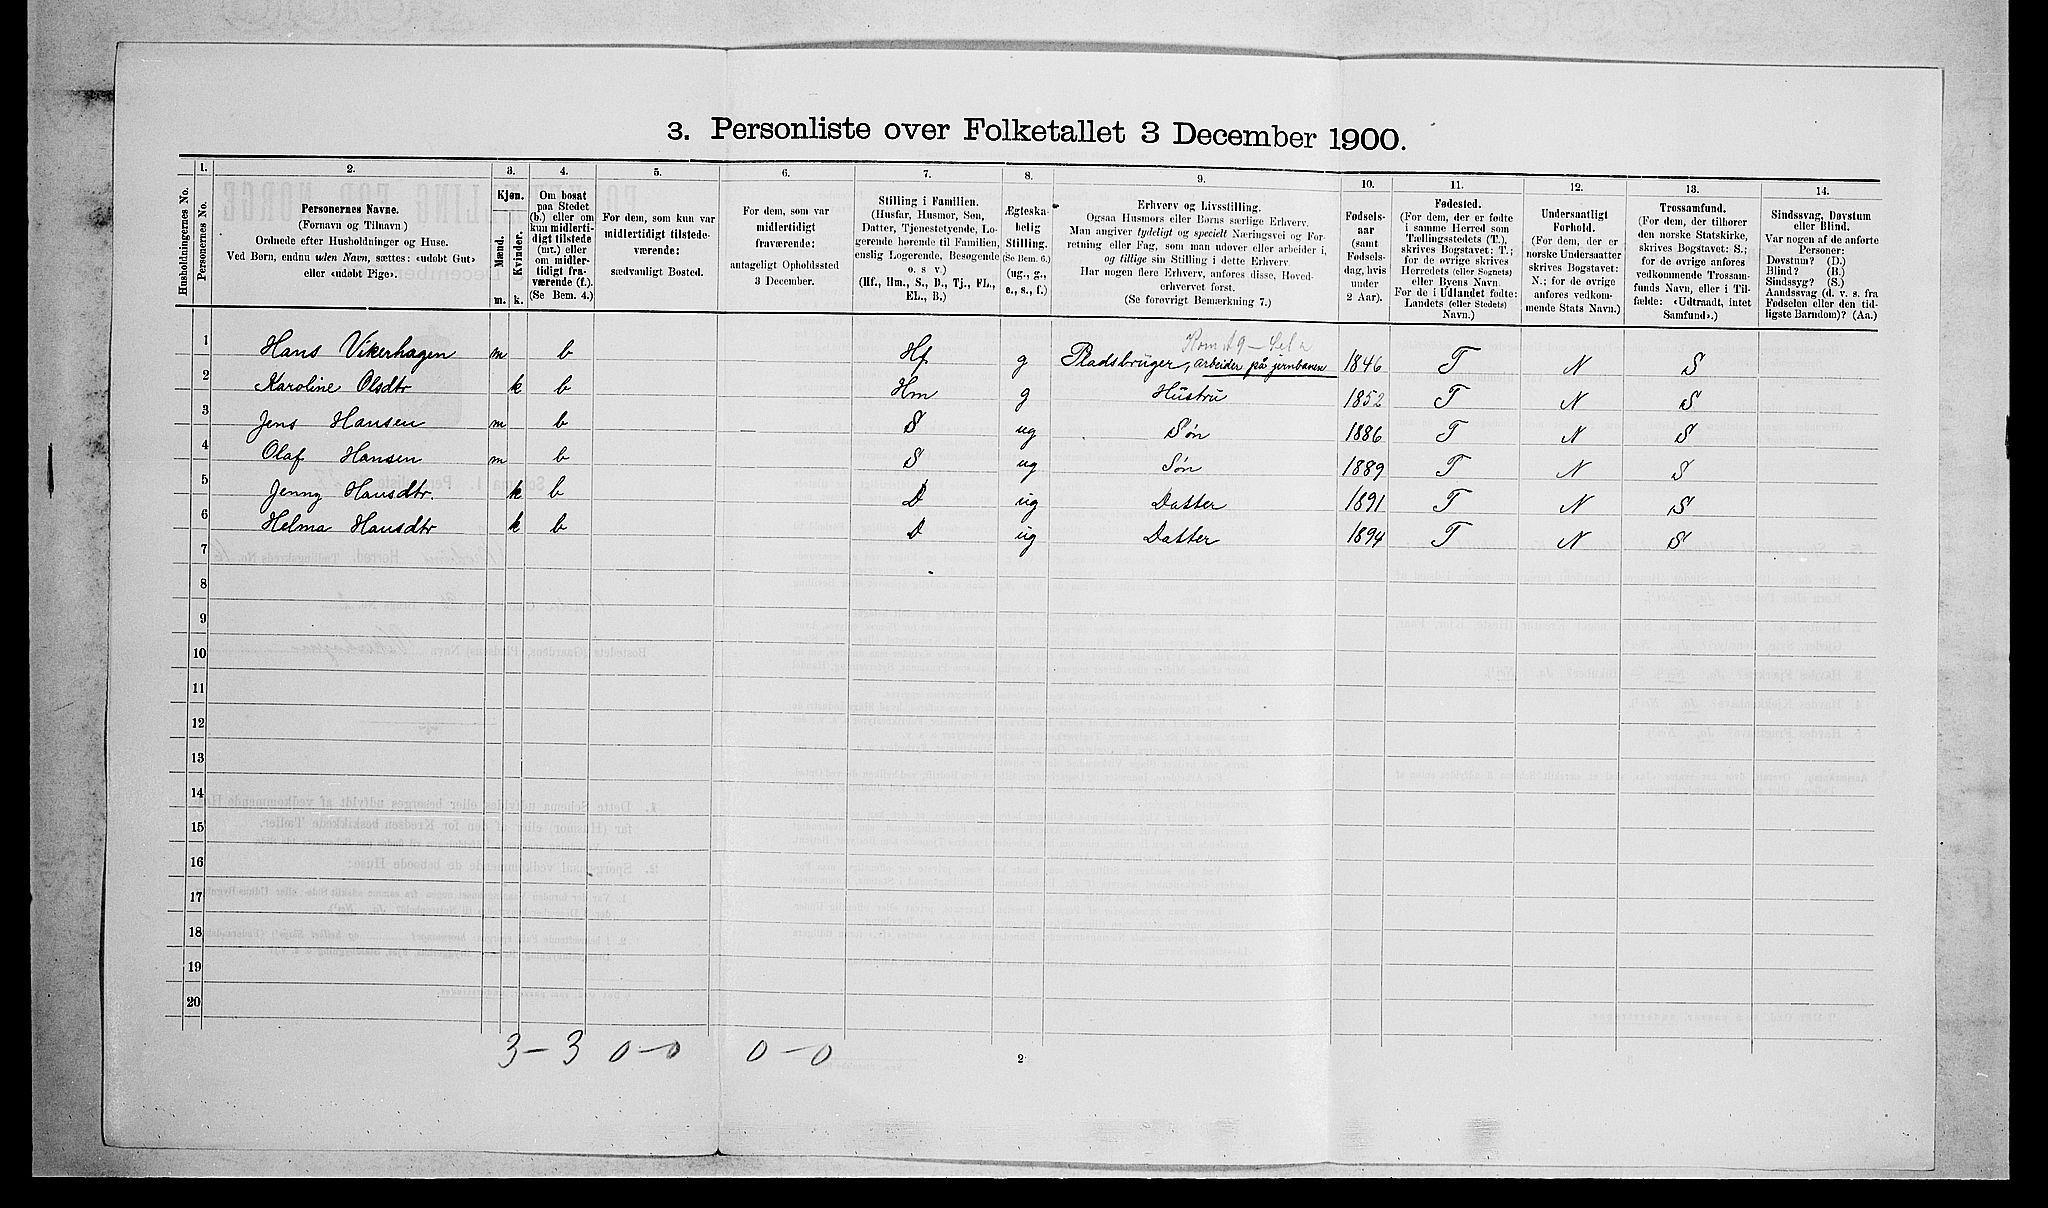 3. Personliste over Folketallet 3 December 1900.
1. 2. 3. 4. 5. 6. 7. 8. 9. 10. 11. 12. 13. 14.
Husholdningernes No.
Personernes No.
Personernes Navne.
(Fornavn og Tilnavn.)
Ordnede efter Husholdninger og Huse.
Ved Børn, endnu uden Navn, sættes: «udøbt Gut»
eller «udøbt Pige».
Kjøn.
Mænd.
Kvinder.
m. k.
Om bosat
paa Stedet
(b.) eller om
kun midlerti-
digt tilstede
(mt.) eller
om midler-
tidigt fra-
værende (f.).
(Se Bem. 4.)
For dem, som kun var
midlertidigt tilstede-
værende:
sædvanligt Bosted.
For dem, som var
midlertidigt
fraværende:
antageligt Opholdssted
3 December.
Stilling i Familien.
(Husfar, Husmor, Søn,
Datter, Tjenestetyende, Lo-
gerende hørende til Familien,
enslig Logerende, Besøgende
o. s. v.)
(Hf., Hm., S., D., Tj., FL.,
EL., B.)
Ægteska-
belig
Stilling.
(Se Bem. 6.)
(ug., g.,
e., s., f.)
Erhverv og Livsstilling.
Ogsaa Husmors eller Børns særlige Erhverv.
Man angiver tydeligt og specielt Næringsvei og For-
retning eller Fag, som man udøver eller arbeider i,
og tillige sin Stilling i dette Erhverv.
Har nogen flere Erhverv, anføres disse, Hoved-
erhvervet først.
(Se forøvrigt Bemærkning 7.)
Fødsels-
aar
(samt
Fødsels-
dag, hvis
under
2 Aar).
Fødested.
(For dem, der er fødte
i samme Herred som
Tællingsstedets (T.),
skrives Bogstavet: T.;
for de øvrige skrives
Herredets (eller Sognets)
eller Byens Navn.
For de i Udlandet fødte:
Landets (eller Stedets)
Navn.)
Undersaatligt
Forhold.
(For dem, der er
norske Undersaatter
skrives Bogstavet:
N.; for de øvrige
anføres vedkom-
mende Stats Navn.)
Trossamfund.
(For dem, der tilhører
den norske Statskirke,
skrives Bogstavet: S.;
for de øvrige anføres
vedkommende Trossam-
funds Navn, eller i Til-
fælde: «Udtraadt, intet
Samfund».)
Sindssvag, Døvstum
eller Blind.
Var nogen af de anførte
Personer:
Døvstum? (D.)
Blind? (B.)
Sindssyg? (S.)
Aandssvag (d. v. s. fra
Fødselen eller den tid-
ligste Barndom)? (Aa.)
1 Hans Vikerhagen m b Hf g Pladsbruger, arbeider på jernbanen 1846 T N S
2 Karoline Olsdtr k b Hm g Hustru 1852 T N S
3 Jens Hansen m b S ug Søn 1886 T N S
4 Olaf Hansen m b S ug Søn 1889 T N S
5 Jenny Hansdtr. k b D ug Datter 1891 T N S
6 Helma Hansdtr k b D ug Datter 1894 T N S
7
8
9
10
11
12
13
14
15
16
17
18
19
20
3 - 3 0 - 0 0 - 0
2